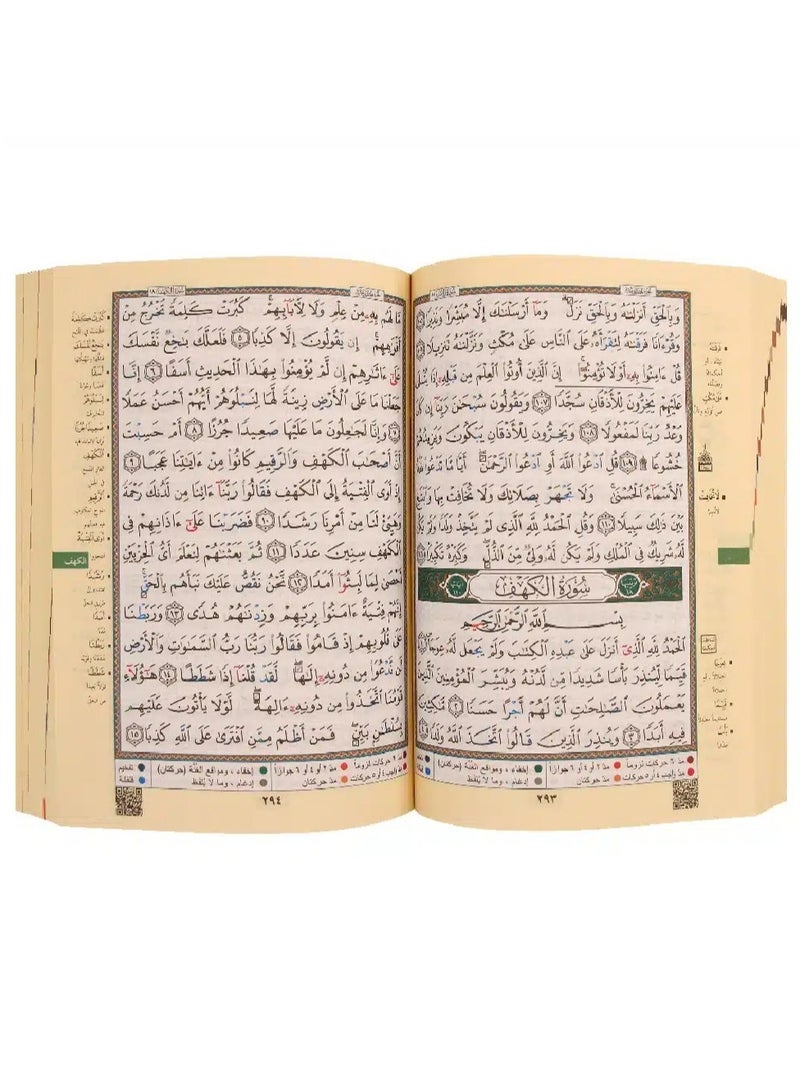 وَبِالْحَقِّ أَنزَلْنَاهُ وَبِالْحَقِّ نَزَلَ ۗ وَمَا أَرْسَلْنَاكَ إِلَّا مُبَشِّرًا وَنَذِيرًا ١٠٥
وَقُرْءَانًا فَرَقْنَاهُ لِتَقْرَأَهُ عَلَى النَّاسِ عَلَىٰ مُكْثٍ وَنَزَّلْنَاهُ تَنزِيلًا ١٠٦
قُلْ ءَامِنُوا بِهِ أَوْ لَا تُؤْمِنُوا ۚ إِنَّ الَّذِينَ أُوتُوا الْعِلْمَ مِن قَبْلِهِ إِذَا يُتْلَىٰ
عَلَيْهِمْ يَخِرُّونَ لِلْأَذْقَانِ سُجَّدًا ١٠٧ وَيَقُولُونَ سُبْحَانَ رَبِّنَا إِن كَانَ
وَعْدُ رَبِّنَا لَمَفْعُولًا ١٠٨ وَيَخِرُّونَ لِلْأَذْقَانِ يَبْكُونَ وَيَزِيدُهُمْ
خُشُوعًا ۩ ١٠٩ قُلِ ادْعُوا اللَّهَ أَوِ ادْعُوا الرَّحْمَٰنَ ۖ أَيًّا مَّا تَدْعُوا فَلَهُ
الْأَسْمَاءُ الْحُسْنَىٰ ۚ وَلَا تَجْهَرْ بِصَلَاتِكَ وَلَا تُخَافِتْ بِهَا وَابْتَغِ
بَيْنَ ذَٰلِكَ سَبِيلًا ١١٠ وَقُلِ الْحَمْدُ لِلَّهِ الَّذِي لَمْ يَتَّخِذْ وَلَدًا وَلَمْ يَكُن
لَّهُ شَرِيكٌ فِي الْمُلْكِ وَلَمْ يَكُن لَّهُ وَلِيٌّ مِّنَ الذُّلِّ ۖ وَكَبِّرْهُ تَكْبِيرًا ١١١
سُورَةُ الْكَهْفِ
بِسْمِ اللَّهِ الرَّحْمَٰنِ الرَّحِيمِ
الْحَمْدُ لِلَّهِ الَّذِي أَنزَلَ عَلَىٰ عَبْدِهِ الْكِتَابَ وَلَمْ يَجْعَل لَّهُ عِوَجًا ١
قَيِّمًا لِّيُنذِرَ بَأْسًا شَدِيدًا مِّن لَّدُنْهُ وَيُبَشِّرَ الْمُؤْمِنِينَ الَّذِينَ
يَعْمَلُونَ الصَّالِحَاتِ أَنَّ لَهُمْ أَجْرًا حَسَنًا ٢ مَّاكِثِينَ
فِيهِ أَبَدًا ٣ وَيُنذِرَ الَّذِينَ قَالُوا اتَّخَذَ اللَّهُ وَلَدًا ٤
مدّ ٦ حركات لزوماً مدّ ٢ أو ٤ أو ٦ جوازاً إخفاء، ومواقع الغُنَّة (حركتان)
مدّ واجب ٤ أو ٥ حركات مدّ حركتان إدغام، وما لا يُلفَظ
٢٩٣
مَّا لَهُم بِهِ مِنْ عِلْمٍ وَلَا لِآبَائِهِمْ ۚ كَبُرَتْ كَلِمَةً تَخْرُجُ مِنْ
أَفْوَاهِهِمْ ۚ إِن يَقُولُونَ إِلَّا كَذِبًا ٥ فَلَعَلَّكَ بَاخِعٌ نَّفْسَكَ
عَلَىٰ ءَاثَارِهِمْ إِن لَّمْ يُؤْمِنُوا بِهَٰذَا الْحَدِيثِ أَسَفًا ٦ إِنَّا
جَعَلْنَا مَا عَلَى الْأَرْضِ زِينَةً لَّهَا لِنَبْلُوَهُمْ أَيُّهُمْ أَحْسَنُ عَمَلًا
٧ وَإِنَّا لَجَاعِلُونَ مَا عَلَيْهَا صَعِيدًا جُرُزًا ٨ أَمْ حَسِبْتَ
أَنَّ أَصْحَابَ الْكَهْفِ وَالرَّقِيمِ كَانُوا مِنْ ءَايَاتِنَا عَجَبًا ٩
إِذْ أَوَى الْفِتْيَةُ إِلَى الْكَهْفِ فَقَالُوا رَبَّنَا ءَاتِنَا مِن لَّدُنكَ رَحْمَةً
وَهَيِّئْ لَنَا مِنْ أَمْرِنَا رَشَدًا ١٠ فَضَرَبْنَا عَلَىٰ ءَاذَانِهِمْ فِي
الْكَهْفِ سِنِينَ عَدَدًا ١١ ثُمَّ بَعَثْنَاهُمْ لِنَعْلَمَ أَيُّ الْحِزْبَيْنِ
أَحْصَىٰ لِمَا لَبِثُوا أَمَدًا ١٢ نَّحْنُ نَقُصُّ عَلَيْكَ نَبَأَهُم بِالْحَقِّ ۚ
إِنَّهُمْ فِتْيَةٌ ءَامَنُوا بِرَبِّهِمْ وَزِدْنَاهُمْ هُدًى ١٣ وَرَبَطْنَا
عَلَىٰ قُلُوبِهِمْ إِذْ قَامُوا فَقَالُوا رَبُّنَا رَبُّ السَّمَاوَاتِ وَالْأَرْضِ
لَن نَّدْعُوَا مِن دُونِهِ إِلَٰهًا ۖ لَّقَدْ قُلْنَا إِذًا شَطَطًا ١٤ هَٰؤُلَاءِ
قَوْمُنَا اتَّخَذُوا مِن دُونِهِ ءَالِهَةً ۖ لَّوْلَا يَأْتُونَ عَلَيْهِم
بِسُلْطَانٍ بَيِّنٍ ۖ فَمَنْ أَظْلَمُ مِمَّنِ افْتَرَىٰ عَلَى اللَّهِ كَذِبًا ١٥
مدّ ٢ أو ٤ أو ٦ جوازاً إخفاء، ومواقع الغُنَّة (حركتان) تفخيم
مدّ حركتان إدغام، وما لا يُلفَظ قلقلة
٢٩٤
الكهف